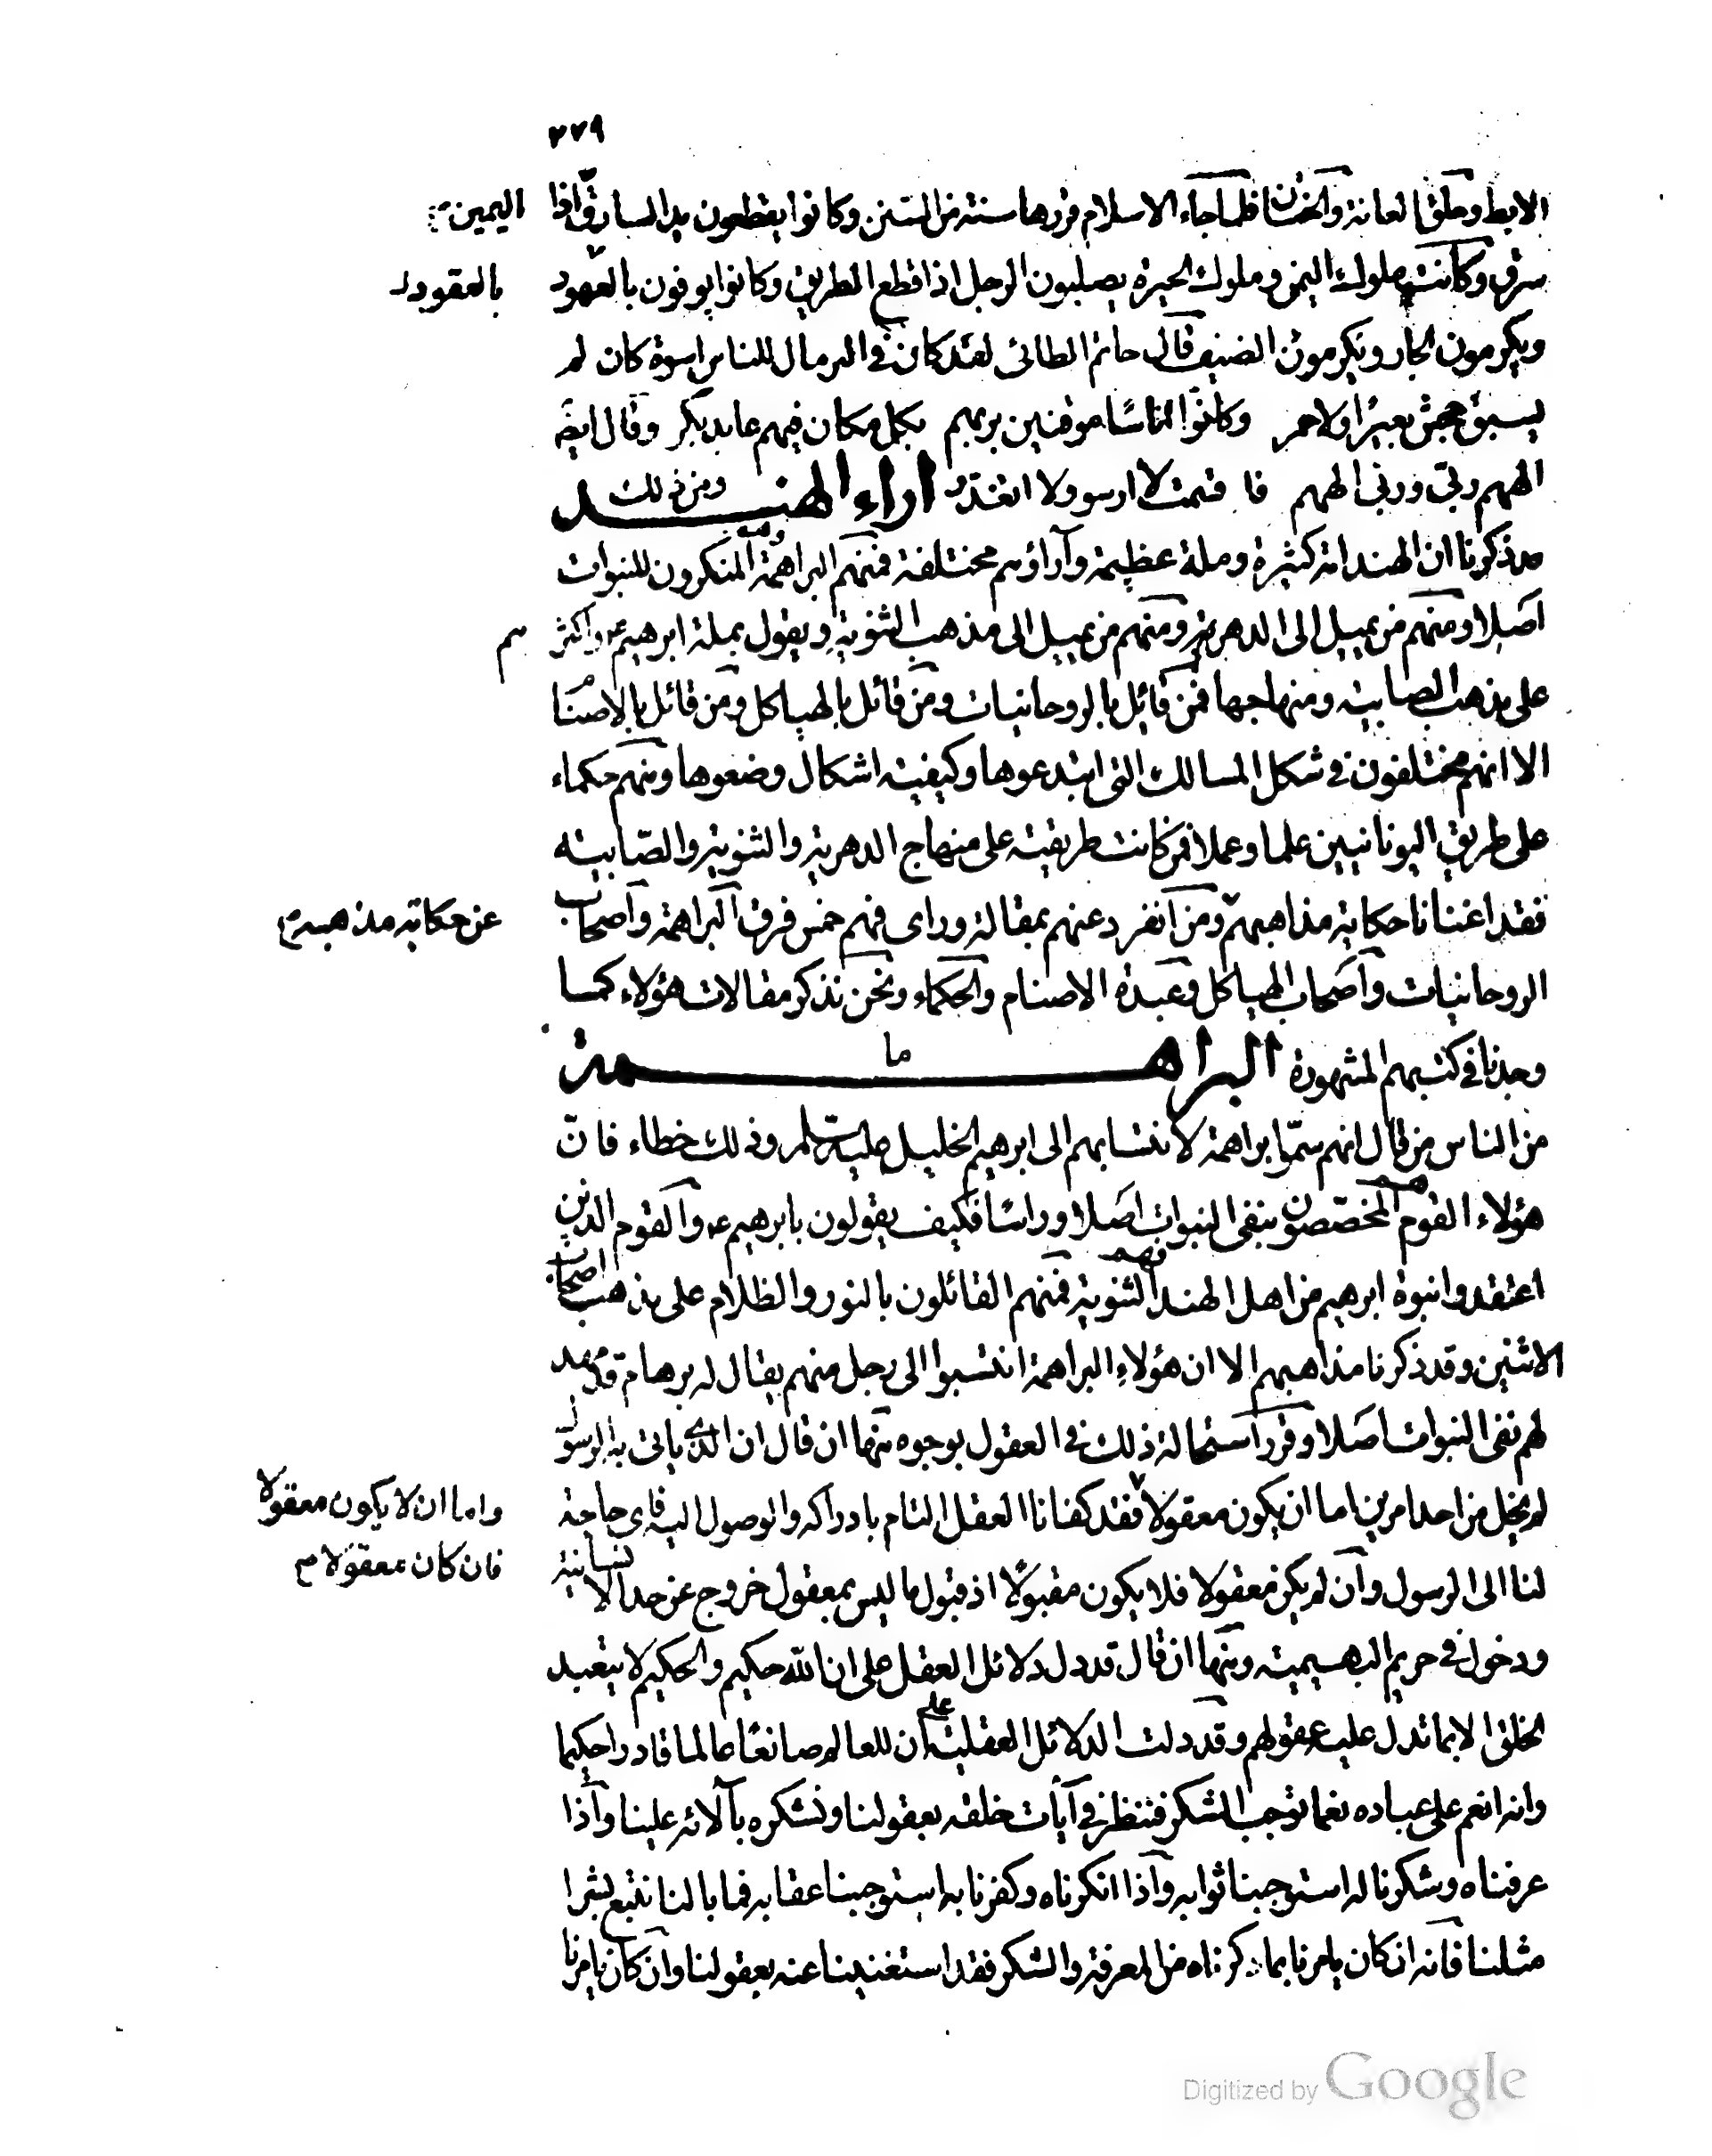 ٢٧٩
الابط وحلق العانة والختان فلما جاء الاسلام قررها سنة من السنن وكانوا يقطعون يد السارق اذا
اليمين
سرق وكانت ملوك اليمن وملوك الحيرة يصلبون الرجل اذا قطع الطريق وكانوا يوفون بالعهود
بالعقود
ويكرمون الجار ويكرمون الضيف قال حاتم الطائى لقد كان فى البرمال للناس اسوة كان لم
يسبق جحش بعير ولا حمر وكانوا اناسا موقنين بربهم بكل مكان فيهم عابد بكر وقال ايضا
الههم ربى وربى الههم فاقسمت لا ارسو ولا اتغدر اراء الهنــد ومن ذلك
قد ذكرنا ان الهند امة كثيرة وملة عظيمة وآراؤهم مختلفة فمنهم البراهمة المنكرون للنبوات
اصلا ومنهم من يميل الى الدهرية ومنهم من يميل الى مذهب الثنوية ويقول بملة ابرهيم عم واكثر
هم
على مذهب الصابية ومنهاجها فمن قائل بالروحانيات ومن قائل بالهياكل ومن قائل بالاصنام
الا انهم مختلفون فى شكل المسالك التى ابتدعوها وكيفية اشكال وضعوها ومنهم حكماء
على طريق اليونانيين علما وعملا فمن كانت طريقته على منهاج الدهرية والثنوية والصابية
فقد اغنانا حكاية مذاهبهم ومن انفرد عنهم بمقالة وراى فهم خمس فرق البراهمة واصحاب
عن حكاية مذهبه
الروحانيات واصحاب الهياكل وعبدة الاصنام والحكماء ونحن نذكر مقالات هؤلاء كما
وجدنا فى كتبهم المشهورة البراهــمة
ما
من الناس من قال انهم سموا براهمة لانتسابهم الى ابرهيم الخليل عليه السلم وذلك خطاء فان
هؤلاء القوم هم المخصصون بنفى النبوات اصلا وراسا فكيف يقولون بابرهيم عم والقوم الذين
اعتقدوا نبوة ابرهيم من اهل الهند فهم الثنوية فمنهم القائلون بالنور والظلام على مذهب اصحاب
الاثنين وقد ذكرنا مذاهبهم الا ان هؤلاء البراهمة انتسبوا الى رجل منهم يقال له برهام قد مهد
لهم نفى النبوات اصلا وقرر استحالة ذلك فى العقول بوجوه منها ان قال ان الذى ياتى به الرسول
لم يخل من احد امرين اما ان يكون معقولا فقد كفانا العقل التام بادراكه والوصول اليه فاى حاجة
واما ان لا يكون معقولا
فان كان معقولا
لنا الى الرسول وان لم يكن معقولا فلا يكون مقبولا اذ قبول ما ليس بمعقول خروج عن حد الانسانية
ودخول فى حريم البهيمية ومنها ان قال قد دل دلائل العقل على ان الله حكيم والحكيم لا يتعبد
الخلق الا بما تدل عليه عقولهم وقد دلت الدلائل العقلية على ان للعالم صانعا عالما قادرا حكيما
وانه انعم على عباده نعما توجب الشكر فننظر فى آيات خلقه بعقولنا ونشكره بآلائه علينا واذا
عرفناه وشكرنا له استوجبنا ثوابه واذا انكرناه وكفرنا به استوجبنا عقابه فما بالنا نتبع بشرا
مثلنا فانه ان كان يامرنا بما ذكرناه من المعرفة والشكر فقد استغنينا عنه بعقولنا وان كان يامرنا
Digitized by Google